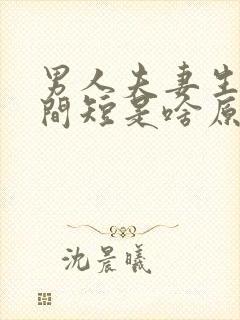 男人夫妻生
間短是啥原
沈晨曦